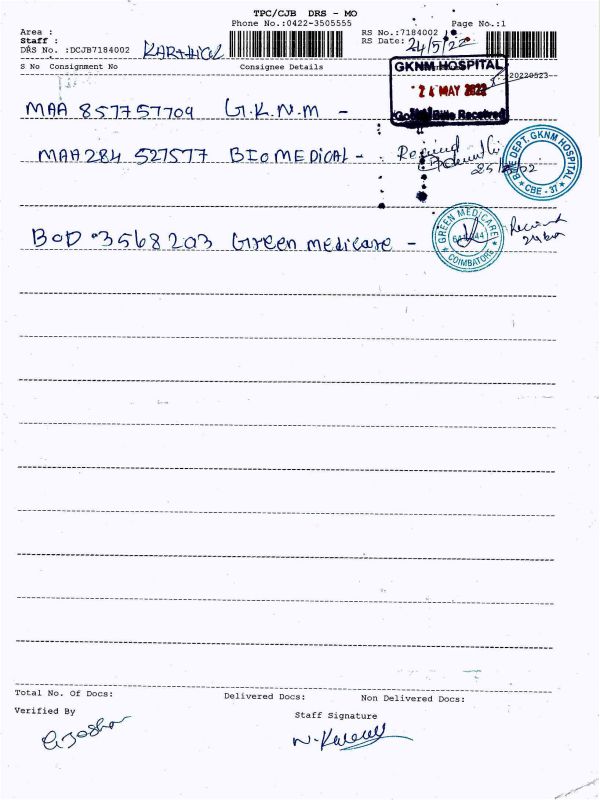 TPC/CJB DRS - MO
Phone No.:0422-3505555 Page No.:1
Area : RS No.:7184002
Staff : RS Date: 24/5/22
DRS No. :DCJB7184002 KARTHICK
S No Consignment No Consignee Details
20220523
GKNM HOSPITAL
24 MAY 2022
Bills Received
MAA 857757709 G.K.N.M -
MAA284 527577 BIOMEDICAL - Received
DEPT. GKNM HOSPITAL
CBE - 37
BOD 3568203 Green medicare - Received
GREEN MEDICARE
COIMBATORE
Total No. Of Docs: Delivered Docs: Non Delivered Docs:
Verified By Staff Signature